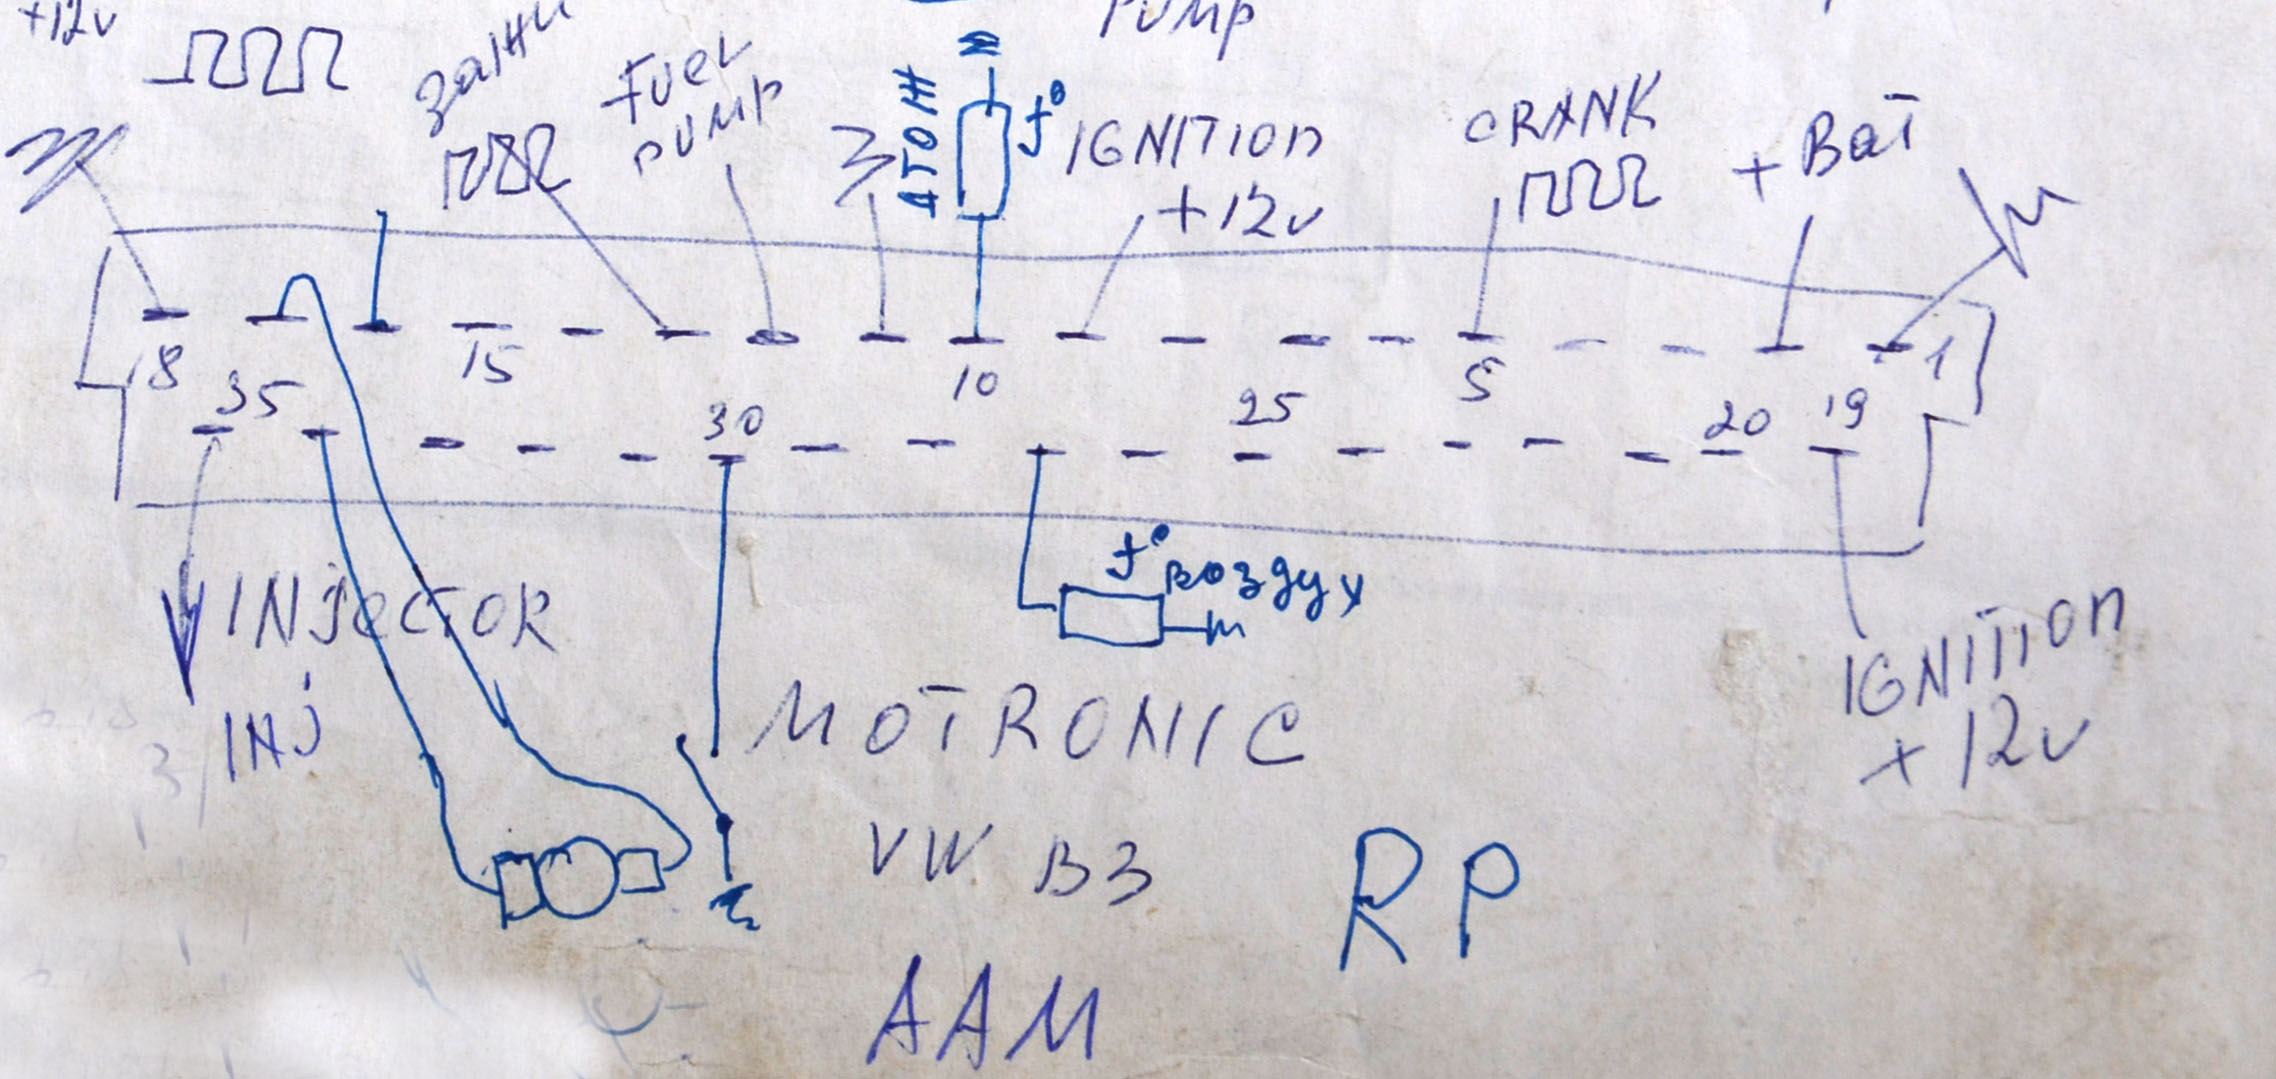 +12v
PUMP
FUEL
PUMP
t°
IGNITION
+12v
CRANK
+ Bat
18
15
10
5
1
35
30
25
20
19
INJECTOR
INJ
t° воздух
IGNITION
+12v
MOTRONIC
VW B3
RP
AAM